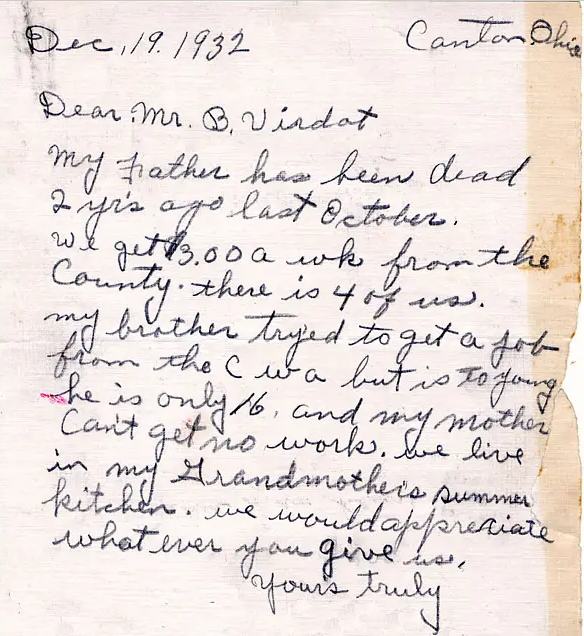 Dec, 19. 1932 Canton, Ohio
Dear Mr. B. Virdot
My Father has been dead
2 yr's ago last October.
we get $3.00 a wk from the
County. there is 4 of us.
my brother tryed to get a job
from the C w a but is to young
he is only 16. and my mother
Can't get no work. we live
in my Grandmothers summer
kitchen. we would appreciate
what ever you give us.
Yours truly